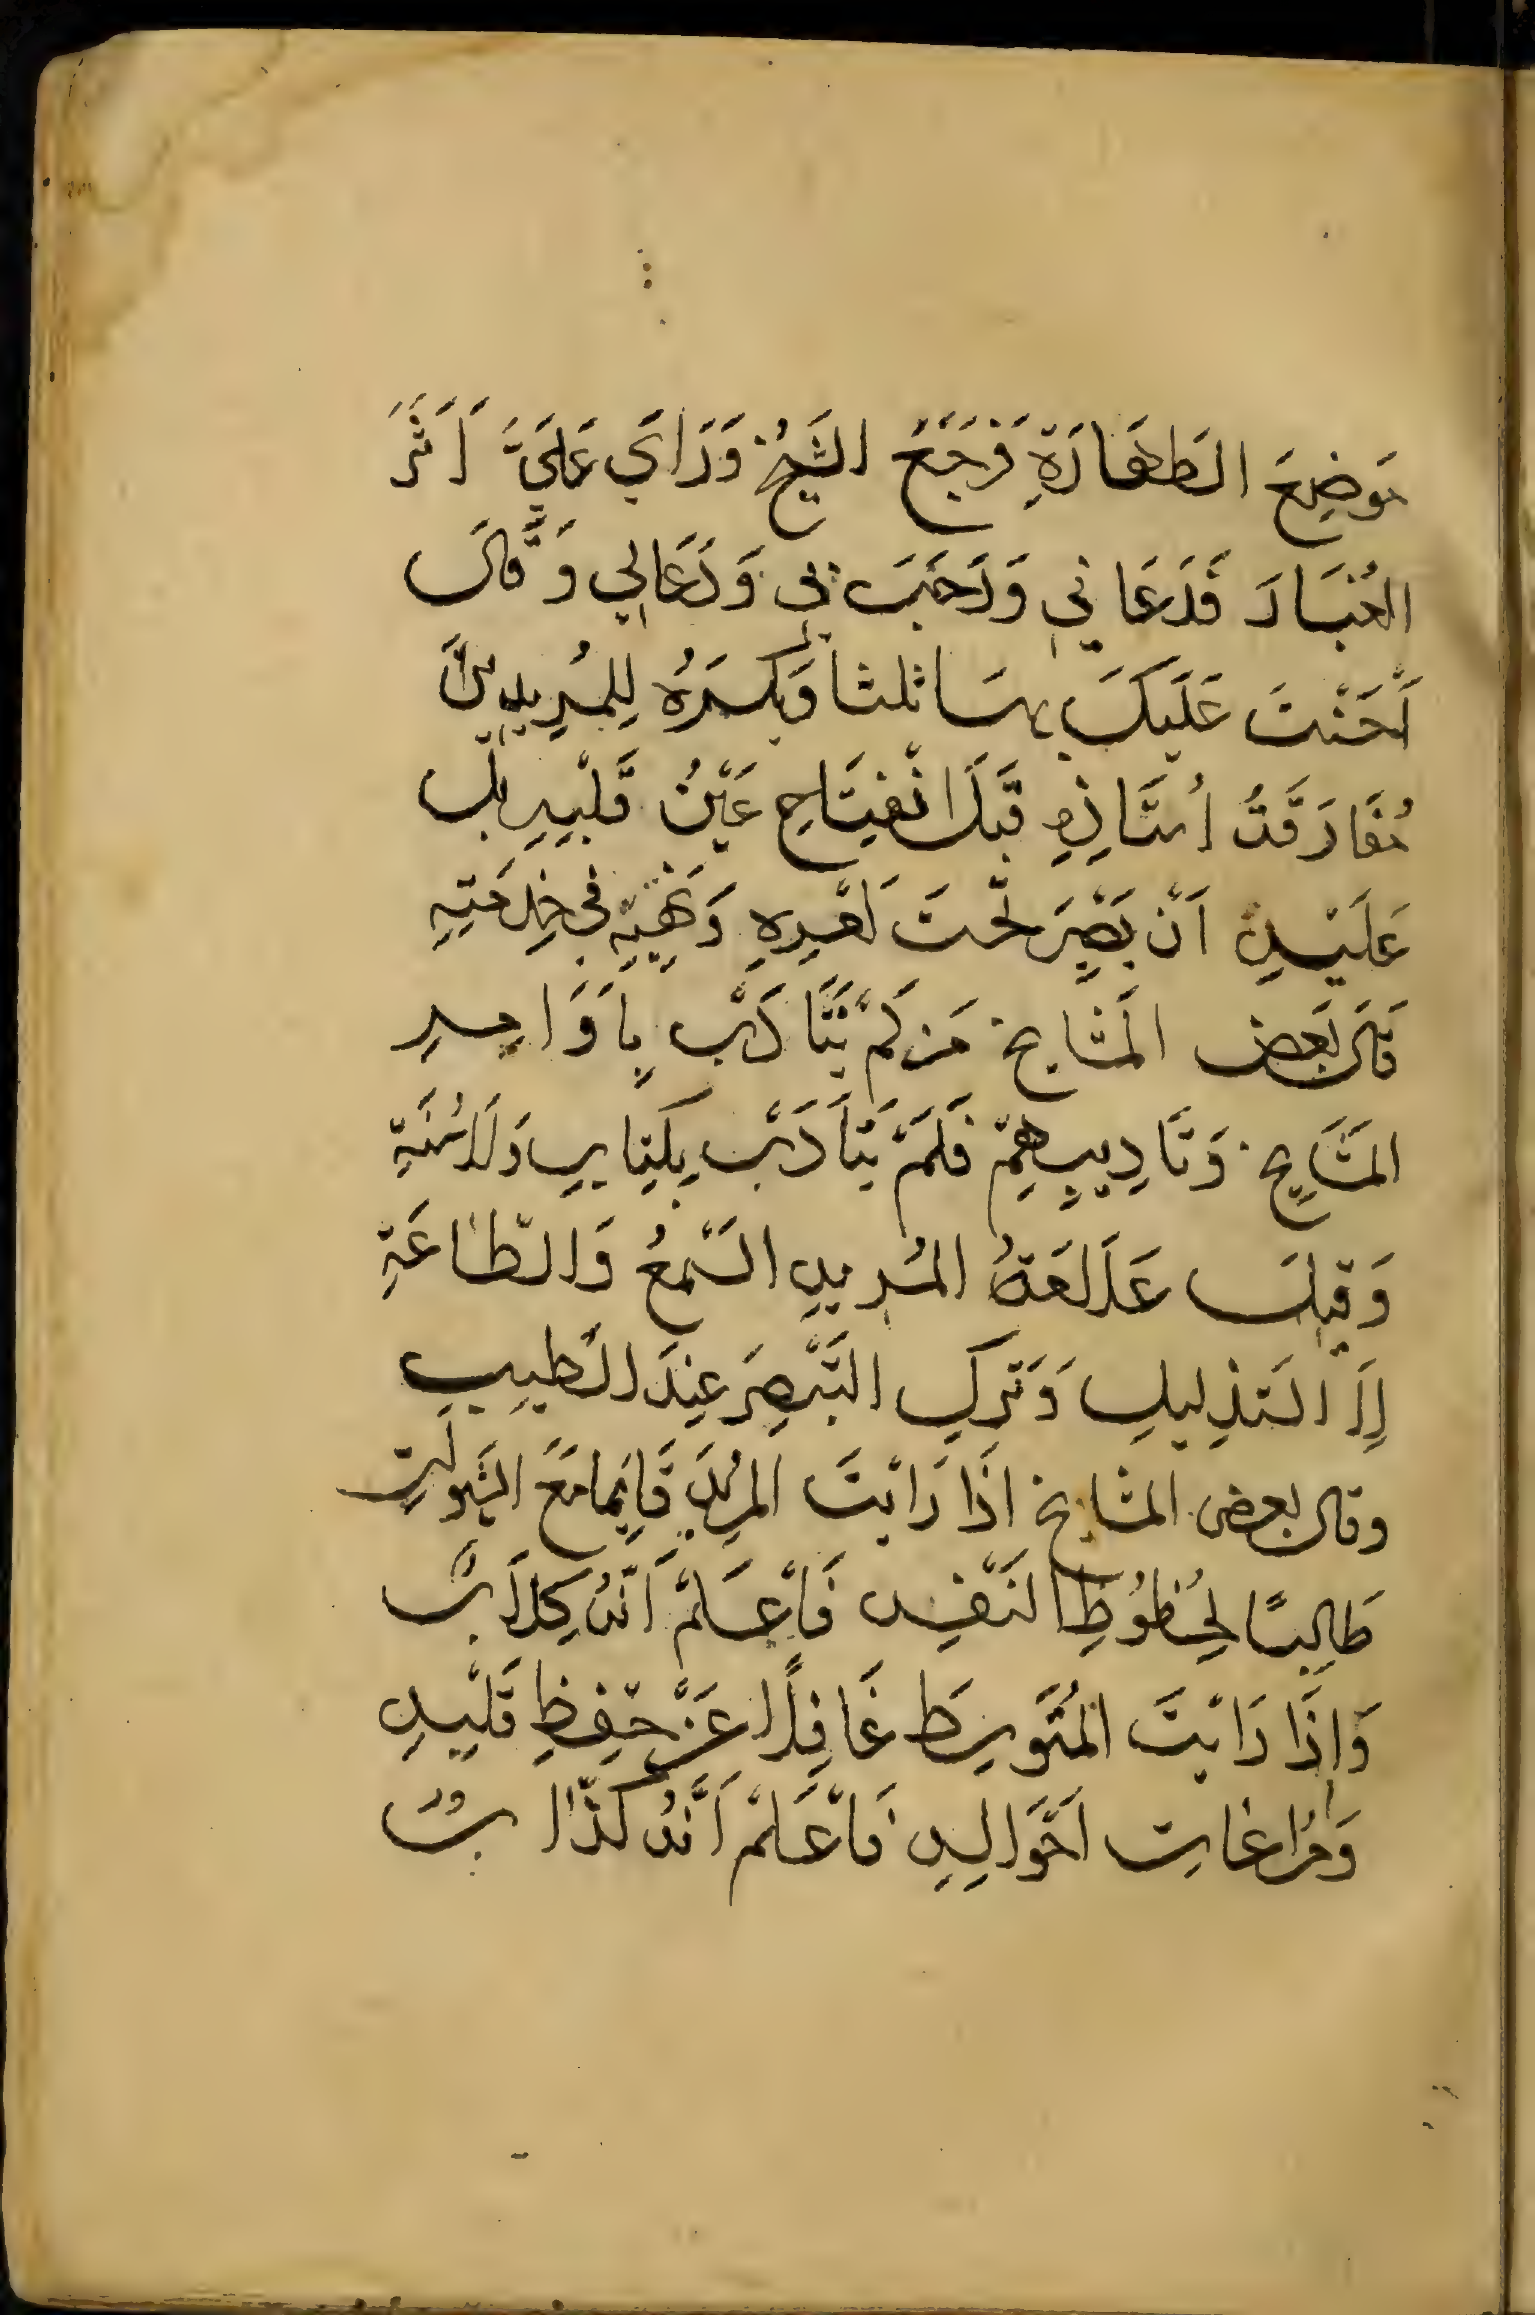 مَوضِعَ الطَهَارَةِ فَرَجَعَ الشَيْخُ وَرَاَي عَلَيَّ اَثَرَ
الغُبَارَ فَدَعَانِي وَرَحَبَ بِي وَدَعَالِي وَقَالَ
اَحْسَنْتَ عَلَيكَ بِهَا ثلثا وَيَكرَهُ لِلمُرِيدِيْنَ
مُفَارَقَةُ اُستَاذِهِ قَبلَ انْفِتَاحِ عَيْنُ قَلْبِهِ بَل
عَلَيْهِ اَنْ يَصْبِرَ تَحْتَ اَمْرِهِ وَنَهْيِهِ فِي خِدمَتِهِ
قَالَ بَعَض المَشَايخ مَن لَمْ يَتَاَدَبْ بِاَوَامِرِ
المَشَايِخ وَتَادِيبِهِمْ فَلَمْ يَتَاَدَبْ بِكِتَابٍ وَلَا سُنَةٍ
وَقِيلَ عَلَامَةُ المُرِيدِ السَمْعُ وَالطَّاعَةِ
اِلَا التَذلِيلِ وَتَركِ التَبَصُرِ عِندَ الطَبِيبِ
وقال بعض المشايخ اِذَا رَايْتَ المُرِيدَ قَايِمَا مَعَ الشَهَوَاتِ
طَالِبًا لِحُظُوظِ النَفْسِ فَاعْلَمْ اَنَّهُ كَذَّابٌ
وَاِذَا رَايْتَ المُتَوَسِطَ غَافِلًا عَنْ حِفْظِ قَلْبِهِ
وَمُرَاعَاتِ اَحْوَالِهِ فَاعْلَمْ اَنَّهُ كَذَّابٌ